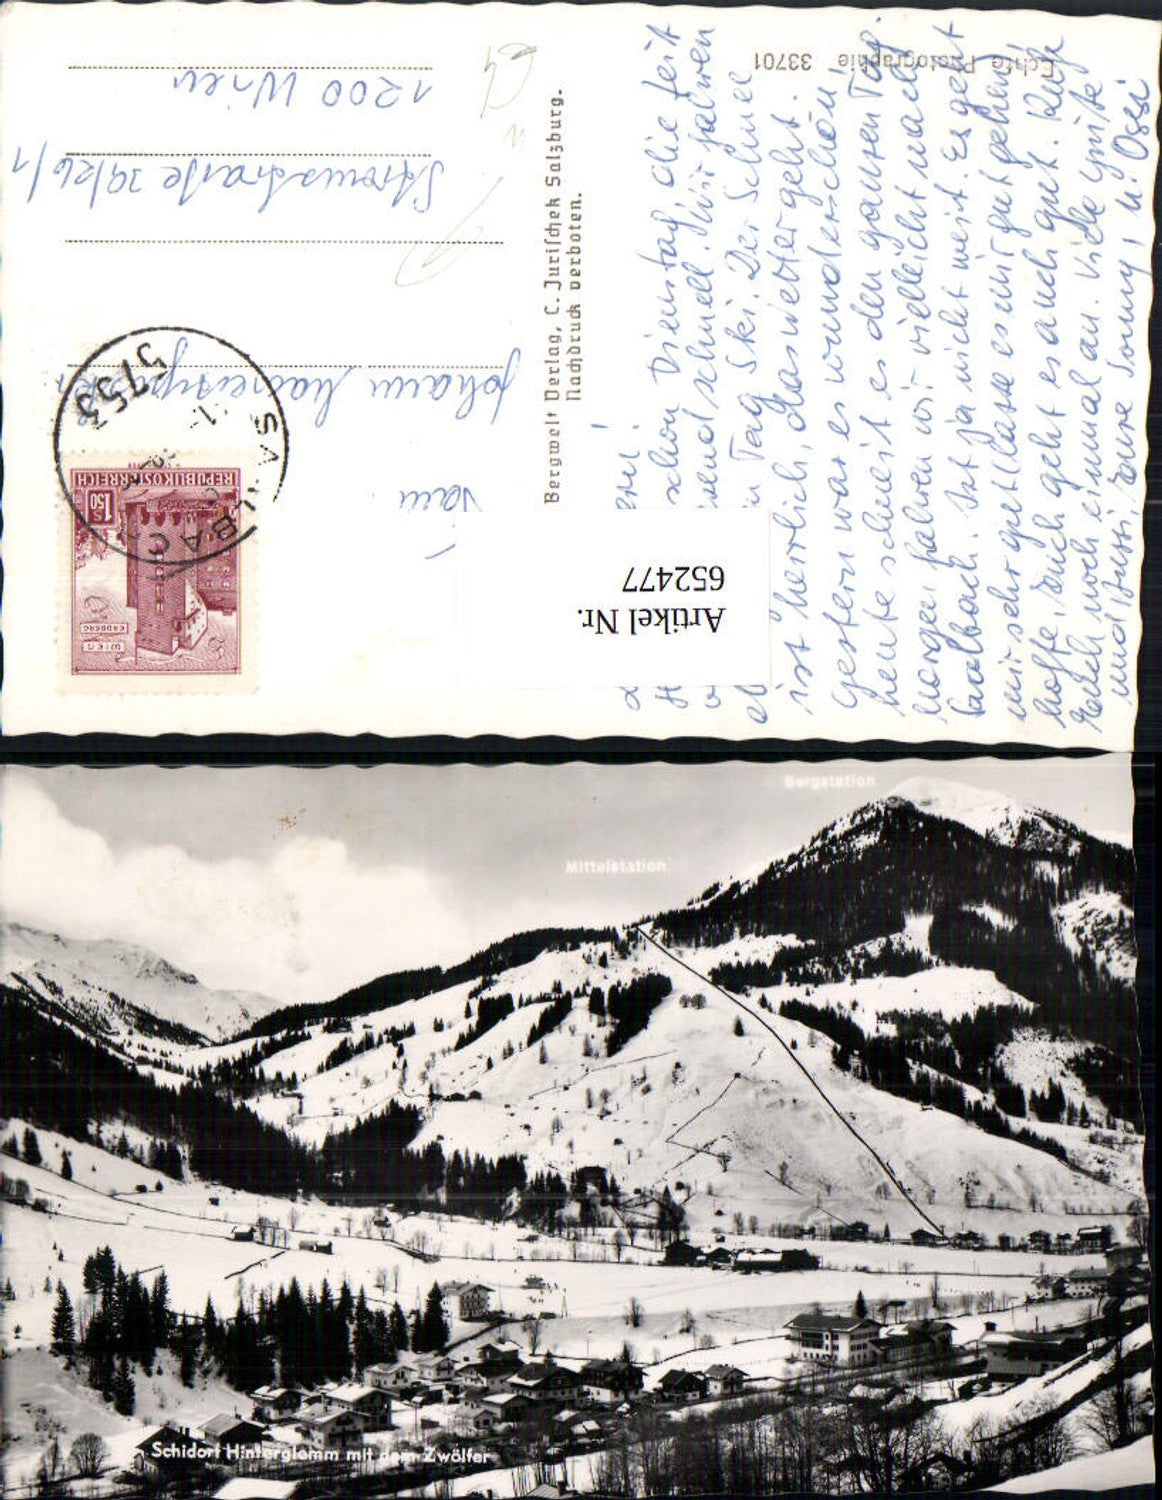 Echte Photographie 33701
schon Dienstag, die Zeit
schnell. Wir fahren
Tag Ski. Der Schnee
ist herrlich, das Wetter geht.
Gestern war es wunderschön
heute schneit es den ganzen Tag.
Morgen fahren wir vielleicht nach
Saalbach. Ist ja nicht weit. Es geht
mir sehr gut (lasse es mir gut gehen)
hoffe, Euch geht es auch gut. Rufe
Euch noch einmal an. Viele gute
und Bussi, Eure Sonny u. Ossi
Bergwelt Verlag, C. Jurischek Salzburg.
Nachdruck verboten.
Fam.
Johann
Stromstraße 39/26/1
1200 Wien
5753 SAALBACH
REPUBLIK ÖSTERREICH
1.50
S
WIEN
ERDBERG
Artikel Nr.
652477
Bergstation
Mittelstation
Schidorf Hinterglemm mit dem Zwölfer